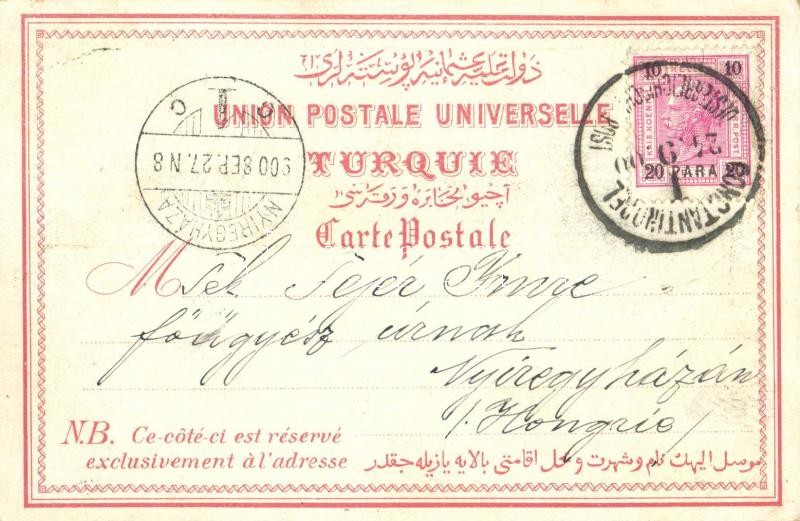 دولت علیه عثمانیه پوسته لری
UNION POSTALE UNIVERSELLE
TURQUIE
آچیق مخابره ورقه سی
Carte Postale
10 10
KAIS.KOENI
R.POST
20 PARA 20
OSTERREICHISCHE POST
27 9 00
CONSTANTINOPEL
I
NYIREGYHAZA
900 SEP. 27. N 8
C C
Msek Fejér Imre
főügyész úrnak
Nyíregyházán
/Hongrie/
N.B. Ce-côté-ci est réservé
exclusivement à l'adresse
موسل الیهك نام و شهرت و محل اقامتی بالایه یازیله جقدر